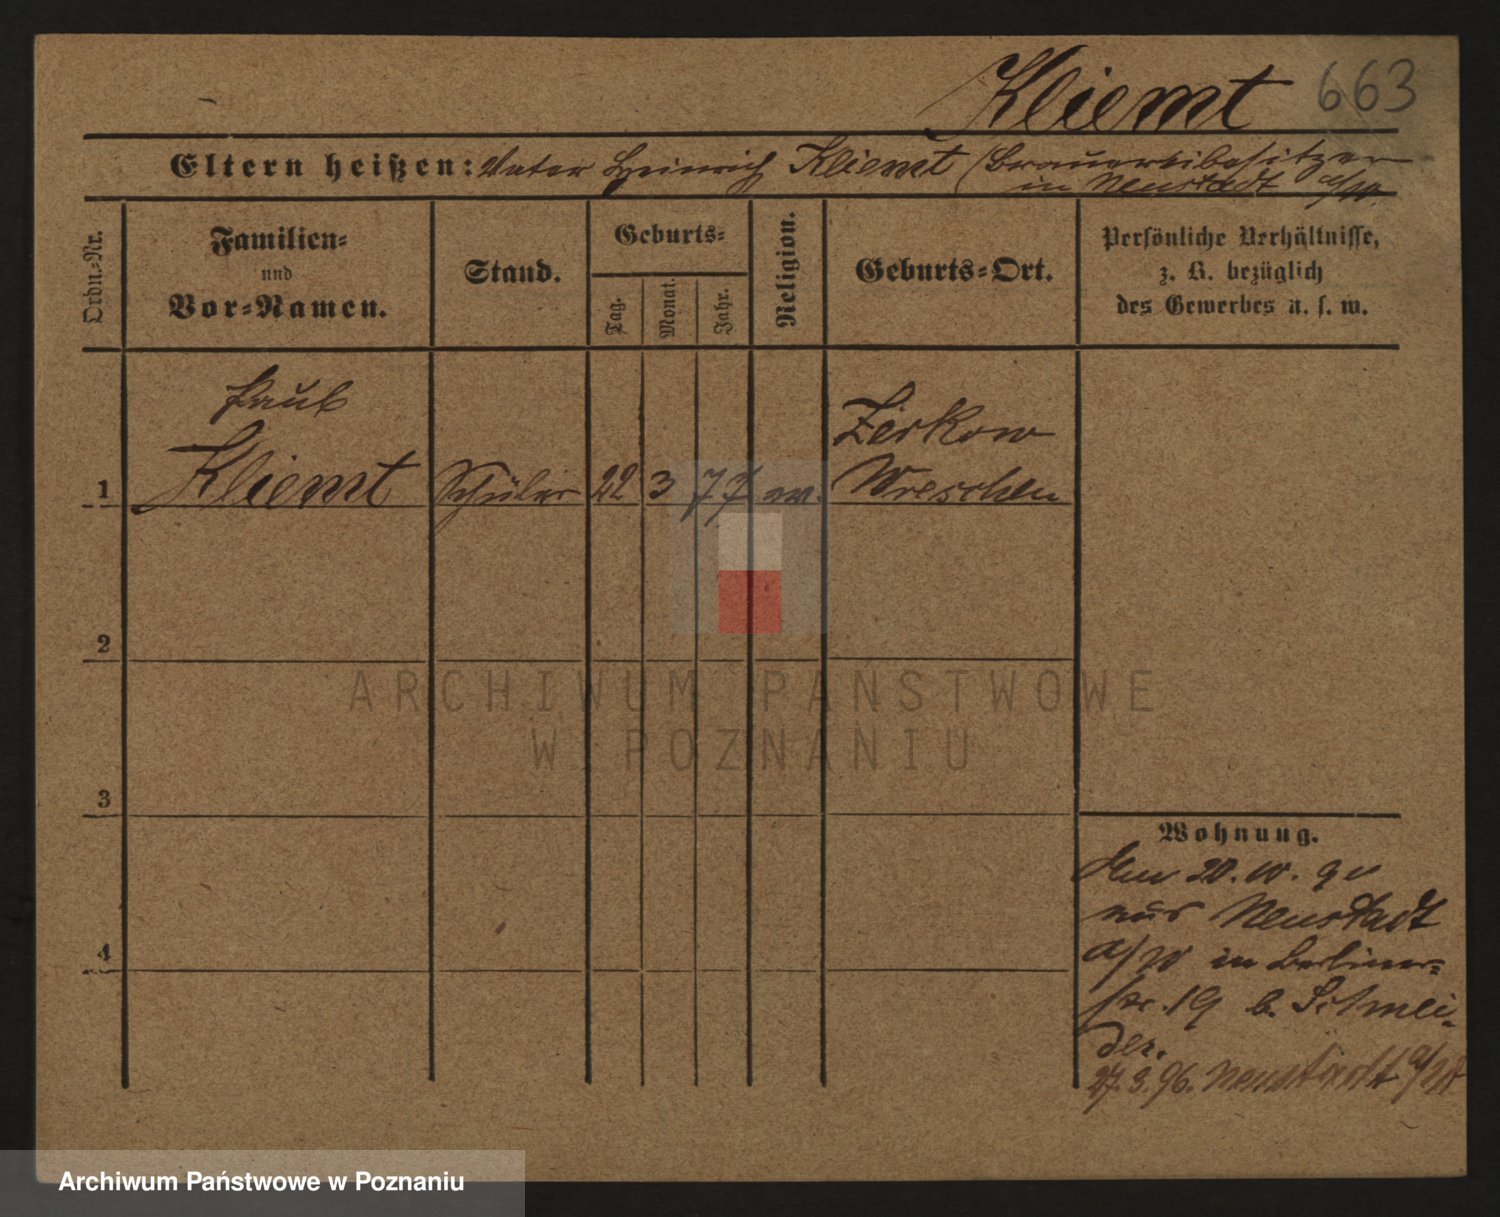 Kliemt 663
Eltern heißen: Vater Heinrich Kliemt (Brauereibesitzer
in Neustadt a/W.
Ordn.-Nr.
Familien-
und
Vor-Namen.
Stand.
Geburts-
Tag.
Monat.
Jahr.
Religion.
Geburts-Ort.
Persönliche Verhältnisse,
z. B. bezüglich
des Gewerbes u. s. w.
Paul
Zerkow
1 Kliemt Schüler 22 3 77 ev. Wreschen
2
3
4
Wohnung.
Neustadt
a/W in Berliner-
str. 19 b. Schnei-
der.
27.3.96. Neustadt a/W
ARCHIWUM PAŃSTWOWE
W POZNANIU
Archiwum Państwowe w Poznaniu